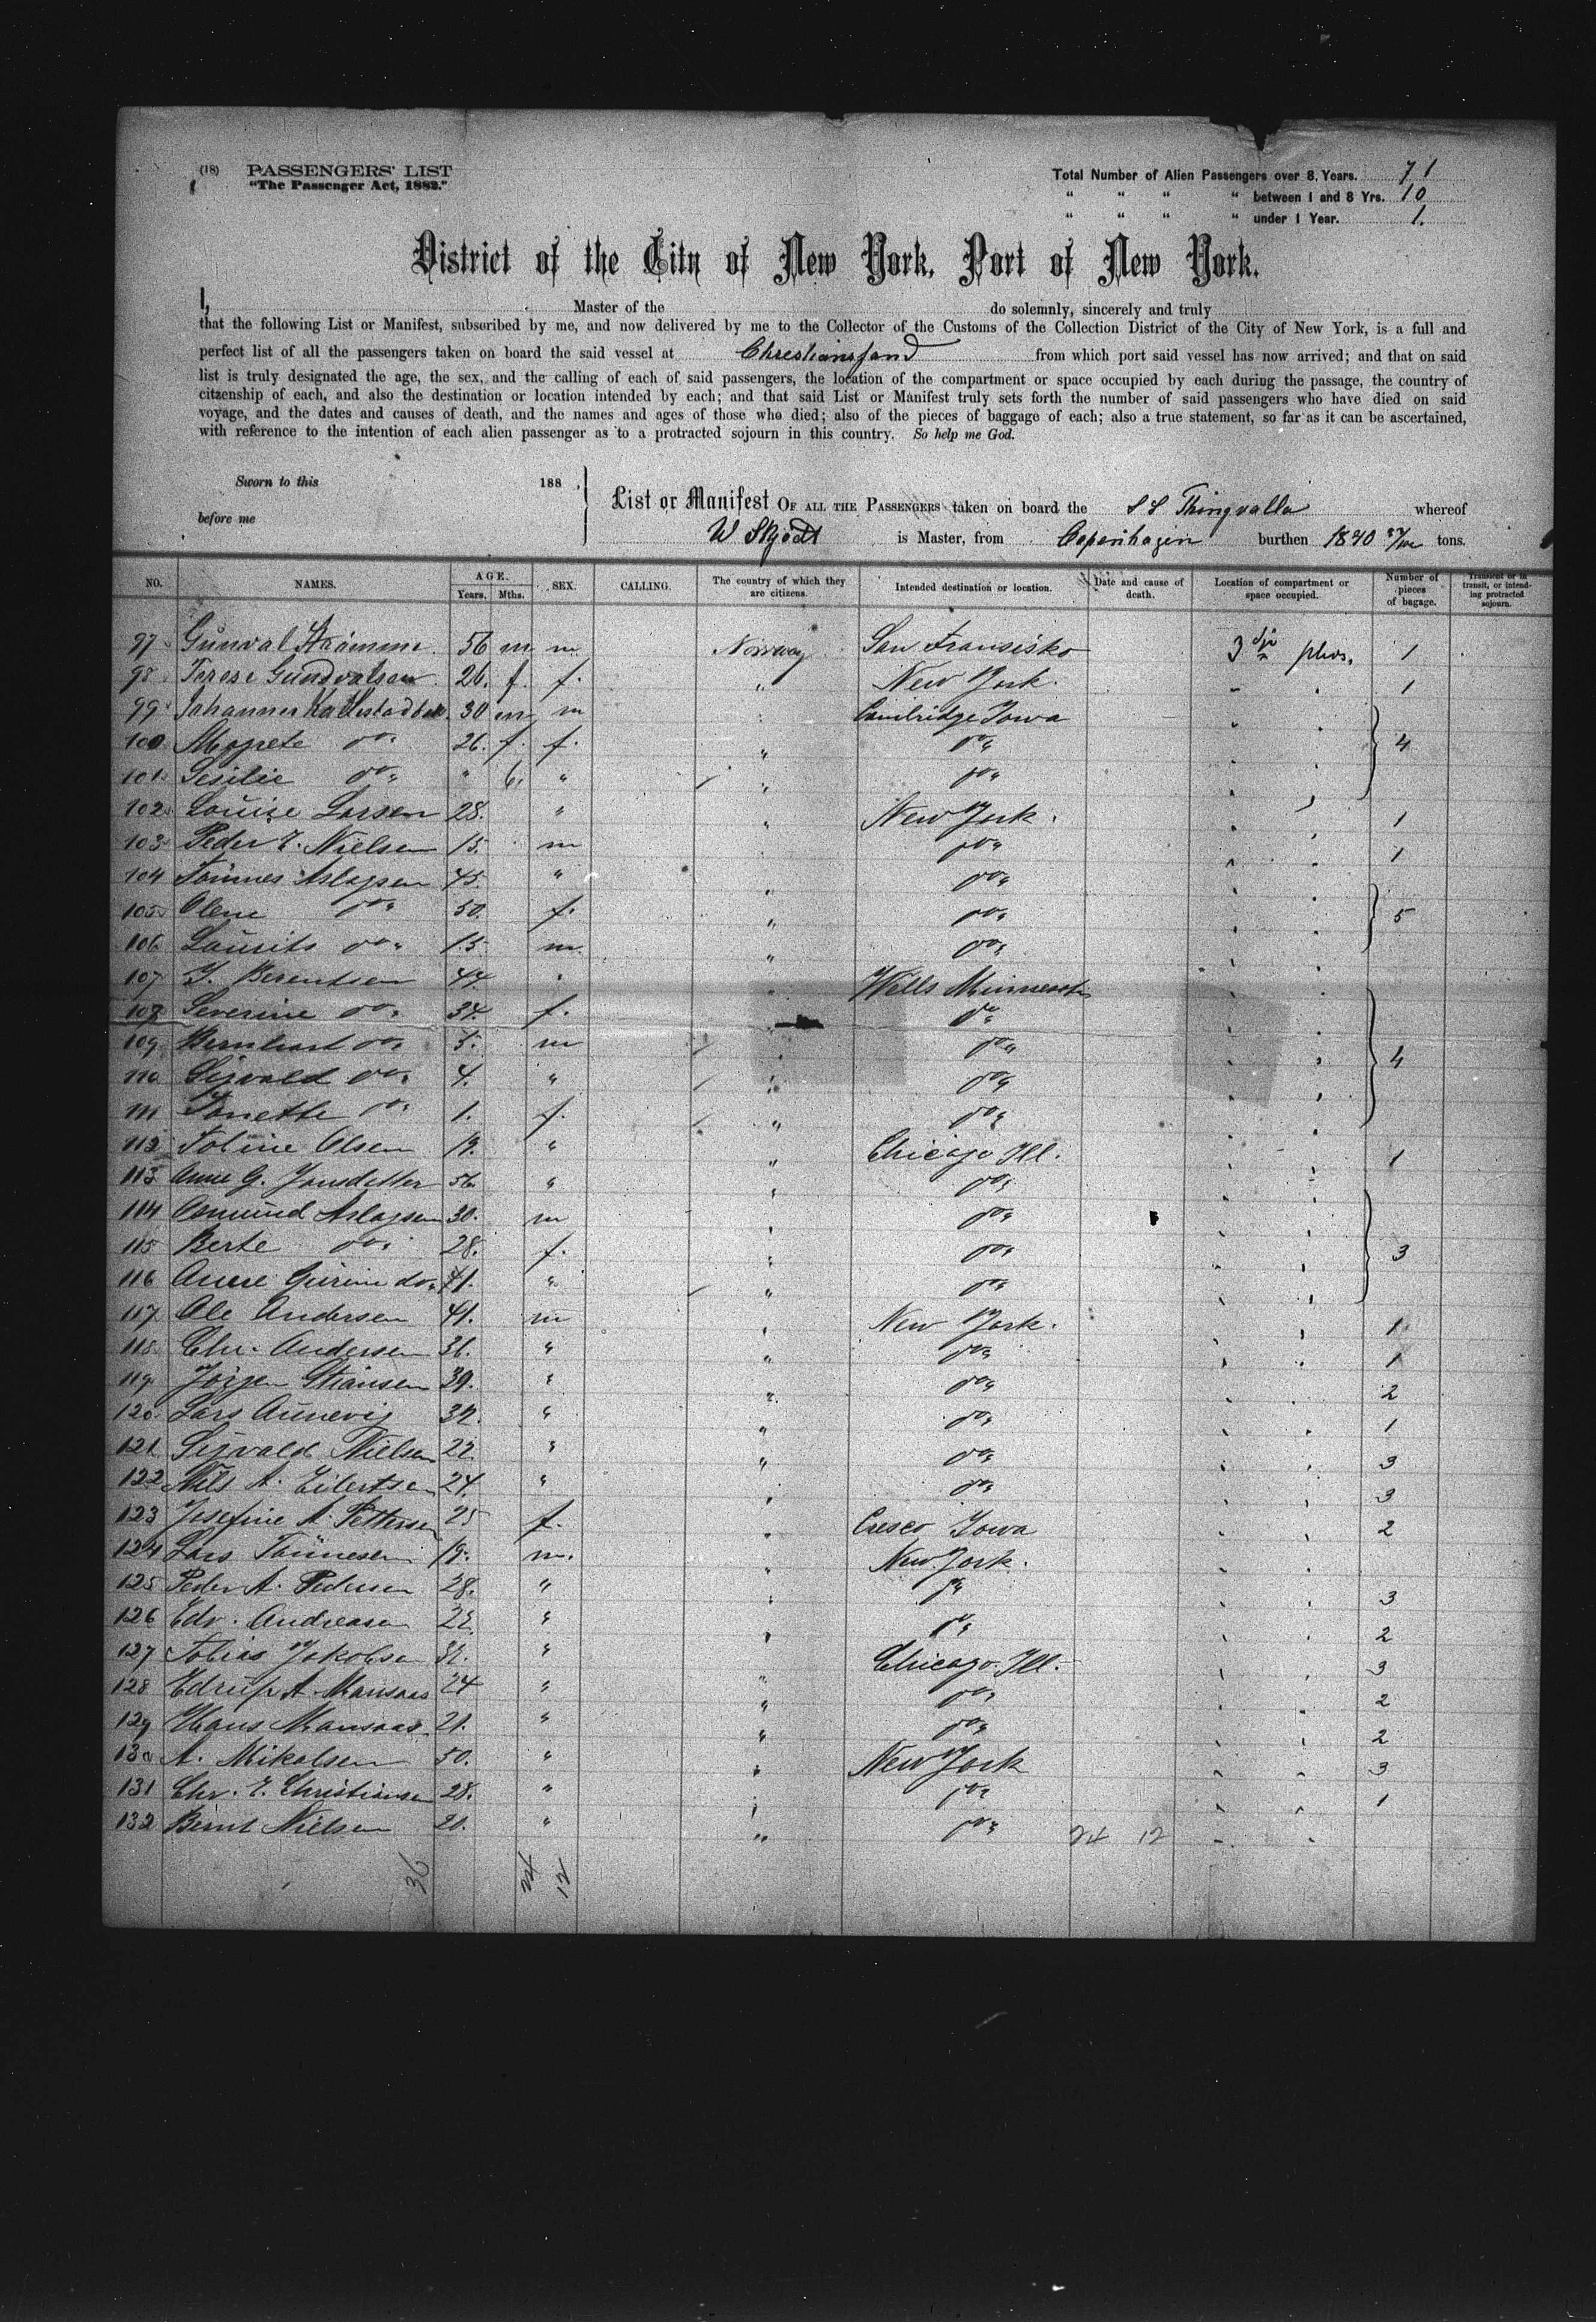 (18) PASSENGERS' LIST
"The Passenger Act, 1882."
Total Number of Alien Passengers over 8. Years. 71
" " " " between 1 and 8 Yrs. 10
" " " " under 1 Year. 1.
District of the City of New York, Port of New York.
I, Master of the do solemnly, sincerely and truly
that the following List or Manifest, subscribed by me, and now delivered by me to the Collector of the Customs of the Collection District of the City of New York, is a full and
perfect list of all the passengers taken on board the said vessel at Christiansand from which port said vessel has now arrived; and that on said
list is truly designated the age, the sex, and the calling of each of said passengers, the location of the compartment or space occupied by each during the passage, the country of
citzenship of each, and also the destination or location intended by each; and that said List or Manifest truly sets forth the number of said passengers who have died on said
voyage, and the dates and causes of death, and the names and ages of those who died; also of the pieces of baggage of each; also a true statement, so far as it can be ascertained,
with reference to the intention of each alien passenger as to a protracted sojourn in this country. So help me God.
Sworn to this 188 .
before me
List or Manifest OF ALL THE PASSENGERS taken on board the S S Thingvalla whereof
W Skjödt is Master, from Copenhagen burthen 1840 tons.
NO. NAMES. AGE. Years. Mths. SEX. CALLING. The country of which they are citizens. Intended destination or location. Date and cause of death. Location of compartment or space occupied. Number of pieces of bagage. Transient or in transit, or intending protracted sojourn.
97 Gunval 56 m m. Norway San Fransisko 3 1
98 Terese Gundvalsen 26. f. f. " New York. 1
99 Johannes 30 m m " Cambridge Iowa
100 Magrete do " 26. f. f. " do " 4
101 Sesilie do " " 6. " " do "
102 Louise Larsen 28. " " New York. 1
103 Peder E. Nielsen 15. m do " 1
104 Tönnes Aslagsen 45. " " do "
105 Olene do " 50. f. " do " 5
106 Laurits do " 15. m. " do "
107 Berentsen 44 " " Wells Minnesota
108 Severine do " 34. f. " do "
109 Bernhard do " 5. m " do " 4
110 Sigvald do " 4. " " do "
111 Tonette do " 1. f. " do "
112 Tobine Olsen 19. " " Chicago Ill. 1
113 Anne G. Jonsdatter 56. " " do "
114 Osmund Aslagsen 30. m " do "
115 Berte do " 28. f. " do " 3
116 Anne Gurine do " 1. " " do "
117 Ole Andersen 41. m " New York. 1
118 Chr. Andersen 36. " " do " 1
119 Jörgen Stiansen 39. " " do " 2
120 Lars Aunevig " " do " 1
121 Sigvald Nielsen " " do " 3
122 Nils A. Eilertsen 24. " " do " 3
123 Josefine A. Pettersen 25 f. " Cresco Iowa 2
124 Lars Tönnesen 19. m. " New York.
125 Peder A. Pedersen 28. " " do " 3
126 Edv. Andreasen " " do " 2
127 Tobias Jakobsen " " Chicago Ill. 3
128 24 " " do " 2
129 Hans 21. " " do " 2
130 A. Mikalsen 50. " " New York 3
131 Chr. E. Christiansen 28. " " do " 1
132 Bernt Nielsen " " do " 24 12
36 24 12